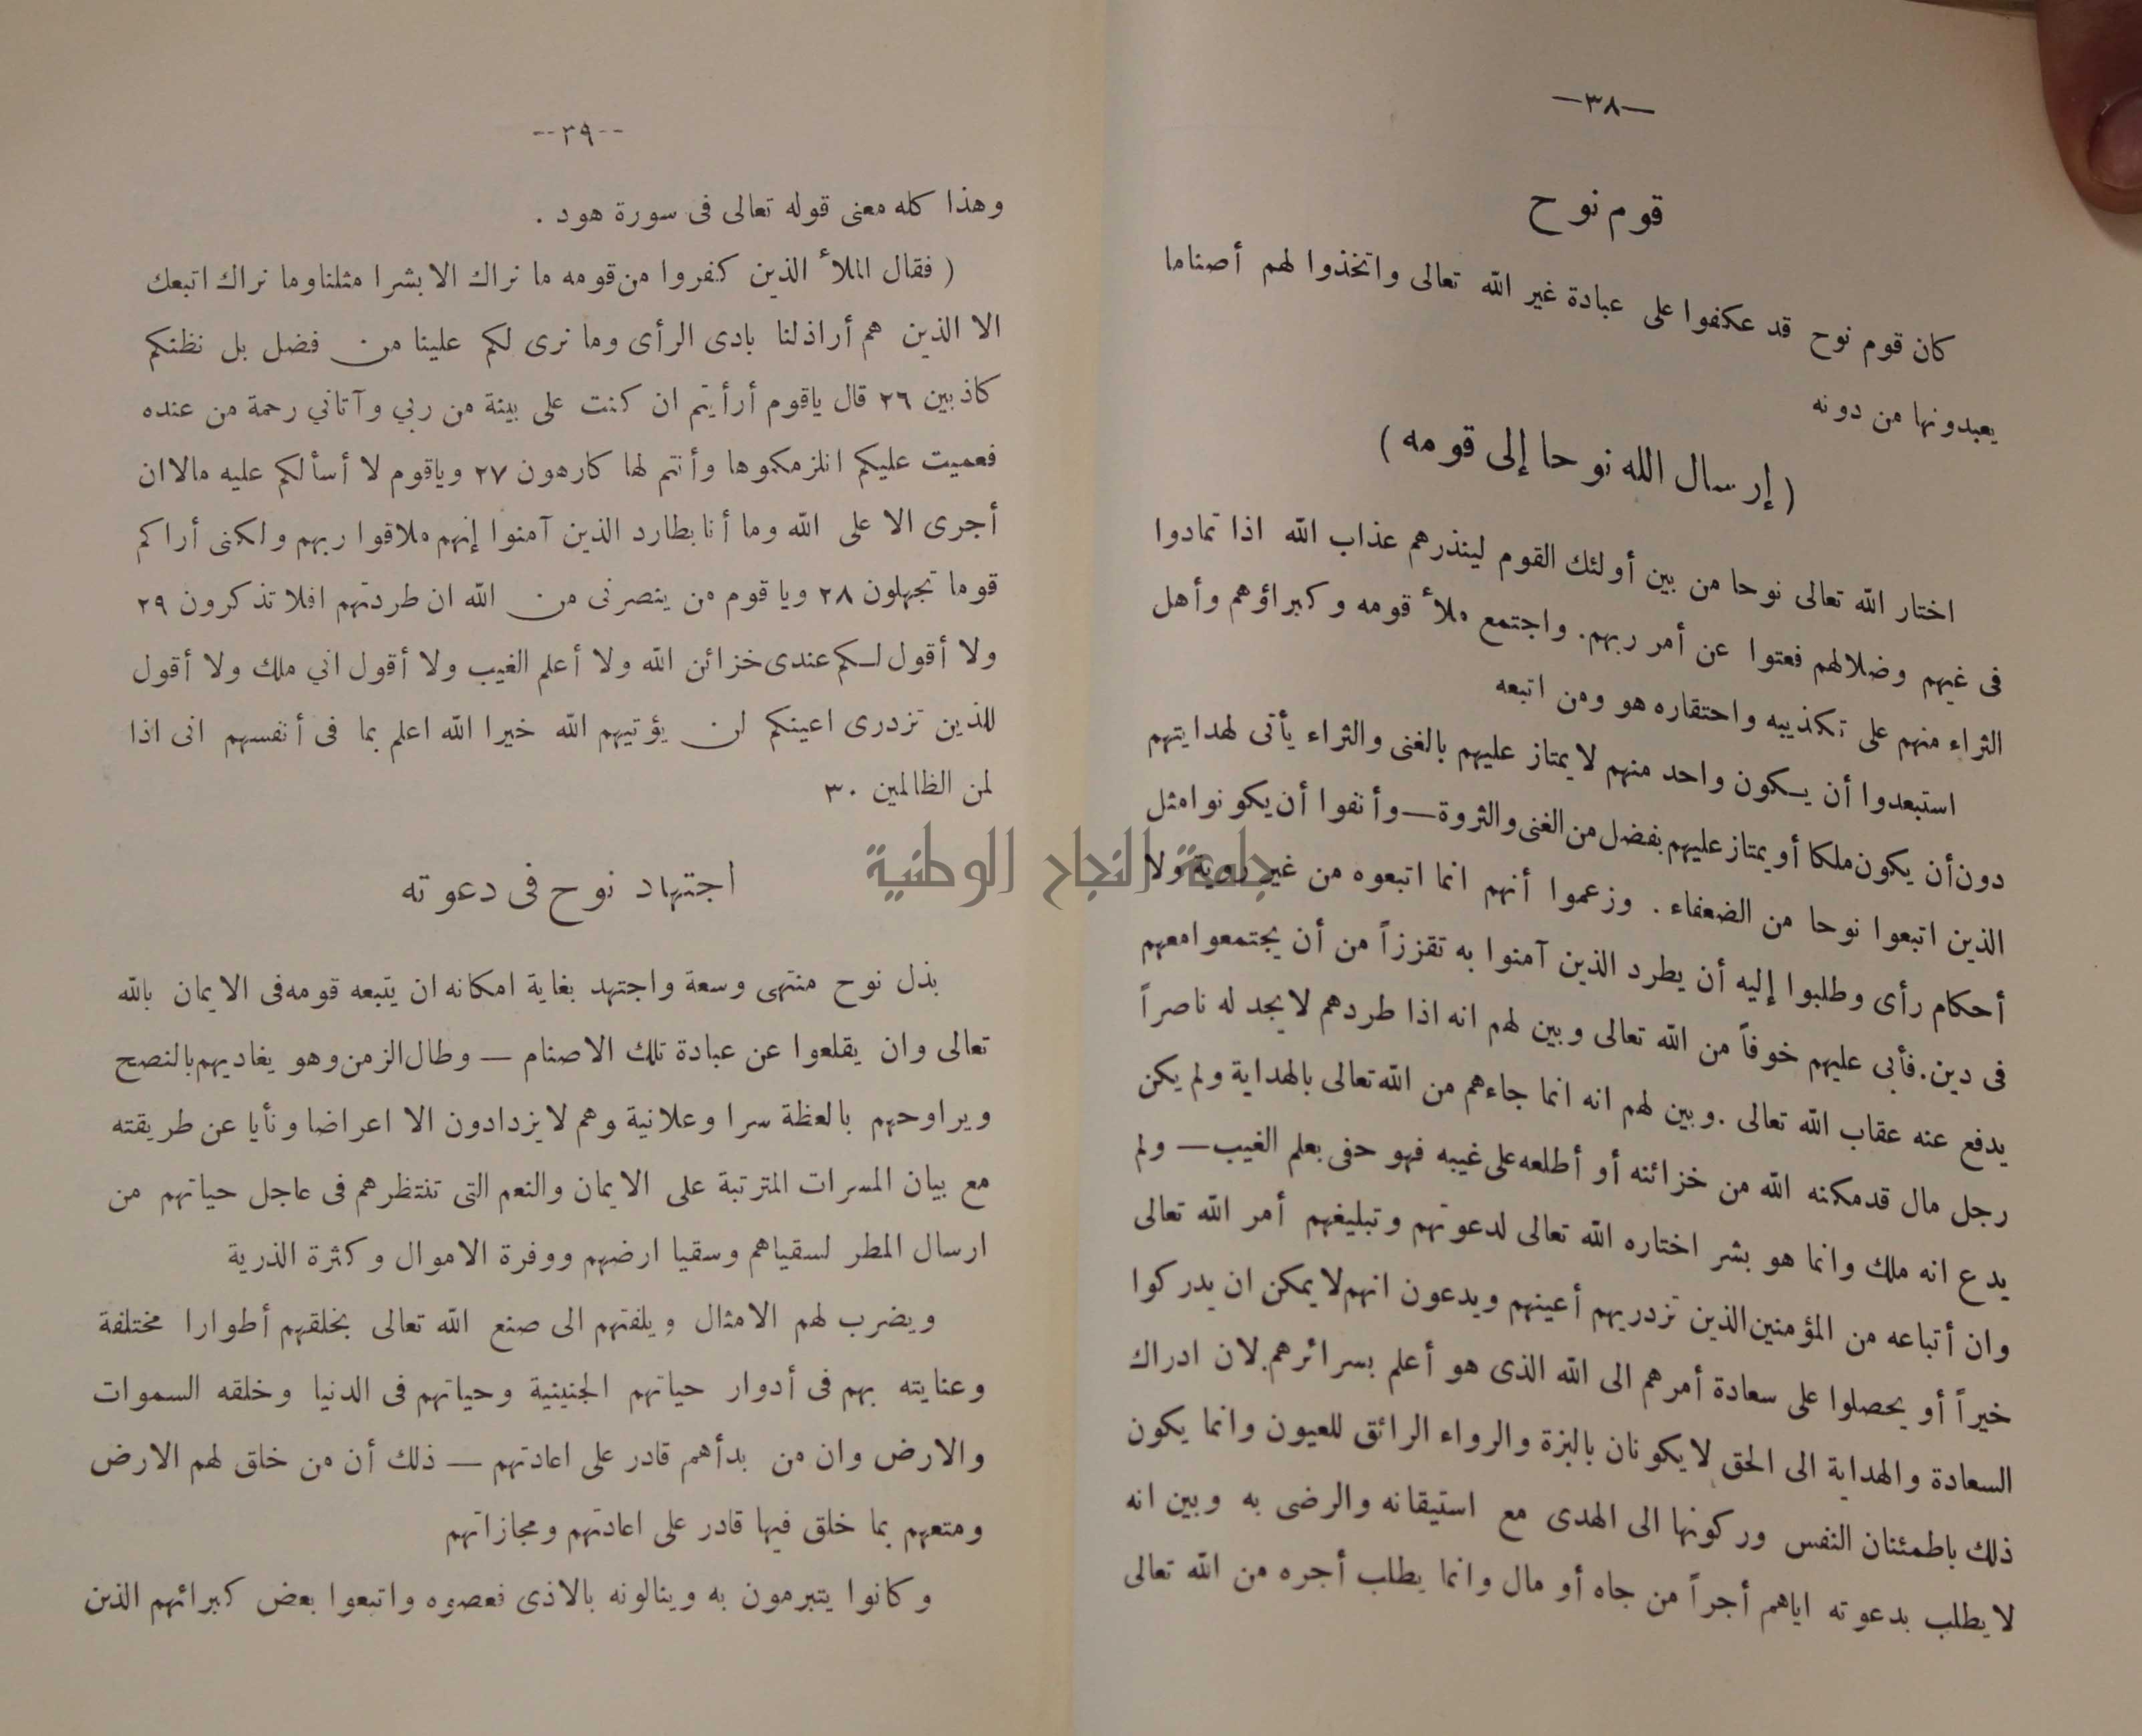 —٣٨—
قوم نوح
كان قوم نوح قد عكفوا على عبادة غير الله تعالى واتخذوا لهم أصناما
يعبدونها من دونه
( إرسال الله نوحا إلى قومه )
اختار الله تعالى نوحا من بين أولئك القوم لينذرهم عذاب الله اذا تمادوا
فى غيهم وضلالهم فعتوا عن أمر ربهم. واجتمع ملأ قومه وكبراؤهم وأهل
الثراء منهم على تكذيبه واحتقاره هو ومن اتبعه
استبعدوا أن يكون واحد منهم لا يمتاز عليهم بالغنى والثراء يأتى لهدايتهم
دون أن يكون ملكا أو يمتاز عليهم بفضل من الغنى والثروة — وأنفوا أن يكونوا مثل
الذين اتبعوا نوحا من الضعفاء . وزعموا أنهم انما اتبعوه من غير روية ولا
أحكام رأى وطلبوا إليه أن يطرد الذين آمنوا به تقززاً من أن يجتمعوا معهم
فى دين. فأبى عليهم خوفاً من الله تعالى وبين لهم انه اذا طردهم لا يجد له ناصراً
يدفع عنه عقاب الله تعالى . وبين لهم انه انما جاءهم من الله تعالى بالهداية ولم يكن
رجل مال قد مكنه الله من خزائنه أو أطلعه على غيبه فهو حفى بعلم الغيب — ولم
يدع انه ملك وانما هو بشر اختاره الله تعالى لدعوتهم وتبليغهم أمر الله تعالى
وان أتباعه من المؤمنين الذين تزدريهم أعينهم ويدعون انهم لا يمكن ان يدركوا
خيراً أو يحصلوا على سعادة أمرهم الى الله الذى هو أعلم بسرائرهم. لان ادراك
السعادة والهداية الى الحق لا يكونان بالبزة والرواء الرائق للعيون وانما يكون
ذلك باطمئنان النفس وركونها الى الهدى مع استيقانه والرضى به وبين انه
لا يطلب بدعوته اياهم أجراً من جاه أو مال وانما يطلب أجره من الله تعالى
--٣٩--
وهذا كله معنى قوله تعالى فى سورة هود .
( فقال الملأ الذين كفروا من قومه ما نراك الا بشرا مثلنا وما نراك اتبعك
الا الذين هم أراذلنا بادى الرأى وما نرى لكم علينا من فضل بل نظنكم
كاذبين ٢٦ قال ياقوم أرأيتم ان كنت على بينة من ربي وآتاني رحمة من عنده
فعميت عليكم انلزمكموها وأنتم لها كارهون ٢٧ وياقوم لا أسألكم عليه مالا ان
أجرى الا على الله وما أنا بطارد الذين آمنوا إنهم ملاقوا ربهم ولكنى أراكم
قوما تجهلون ٢٨ ويا قوم من ينصرنى من الله ان طردتهم افلا تذكرون ٢٩
ولا أقول لكم عندى خزائن الله ولا أعلم الغيب ولا أقول اني ملك ولا أقول
للذين تزدرى اعينكم لن يؤتيهم الله خيرا الله اعلم بما فى أنفسهم انى اذا
لمن الظالمين ٣٠
اجتهاد نوح فى دعوته
بذل نوح منتهى وسعة واجتهد بغاية امكانه ان يتبعه قومه فى الايمان بالله
تعالى وان يقلعوا عن عبادة تلك الاصنام — وطال الزمن وهو يغاديهم بالنصح
ويراوحهم بالعظة سرا وعلانية وهم لا يزدادون الا اعراضا ونأيا عن طريقته
مع بيان المسرات المترتبة على الايمان والنعم التى تنتظرهم فى عاجل حياتهم من
ارسال المطر لسقياهم وسقيا ارضهم ووفرة الاموال وكثرة الذرية
ويضرب لهم الامثال ويلفتهم الى صنع الله تعالى بخلقهم أطوارا مختلفة
وعنايته بهم فى أدوار حياتهم الجنينية وحياتهم فى الدنيا وخلقه السموات
والارض وان من بدأهم قادر على اعادتهم — ذلك أن من خلق لهم الارض
ومتعهم بما خلق فيها قادر على اعادتهم ومجازاتهم
وكانوا يتبرمون به وينالونه بالاذى فعصوه واتبعوا بعض كبرائهم الذين
جامعة النجاح الوطنية